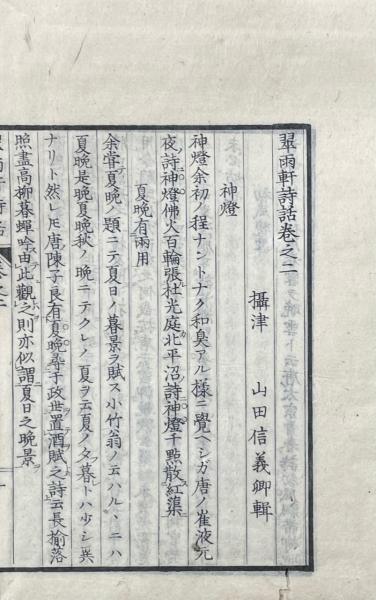 翠雨軒詩話卷之二
攝津　山田信義卿輯
神燈
神燈余初ノ程ナントナク和臭アル樣ニ覺ヘシガ唐ノ崔液元
夜ノ詩神燈佛火百輪張杜光庭北平沼詩神燈千點散紅蕖
夏晚有兩用
余嘗夏晚ノ題ニテ夏日ノ暮景ヲ賦ス小竹翁ノ云ハル丶ニハ
夏晚是晚夏晚秋ノ晚ニテクレノ夏ヲ云夏ノタ暮トハ少シ異
ナリト然レ𪜈唐陳子良有夏晚尋于政世置酒賦之詩云長榆落
照盡高柳暮蟬吟由此觀之則亦似謂夏日之晚景